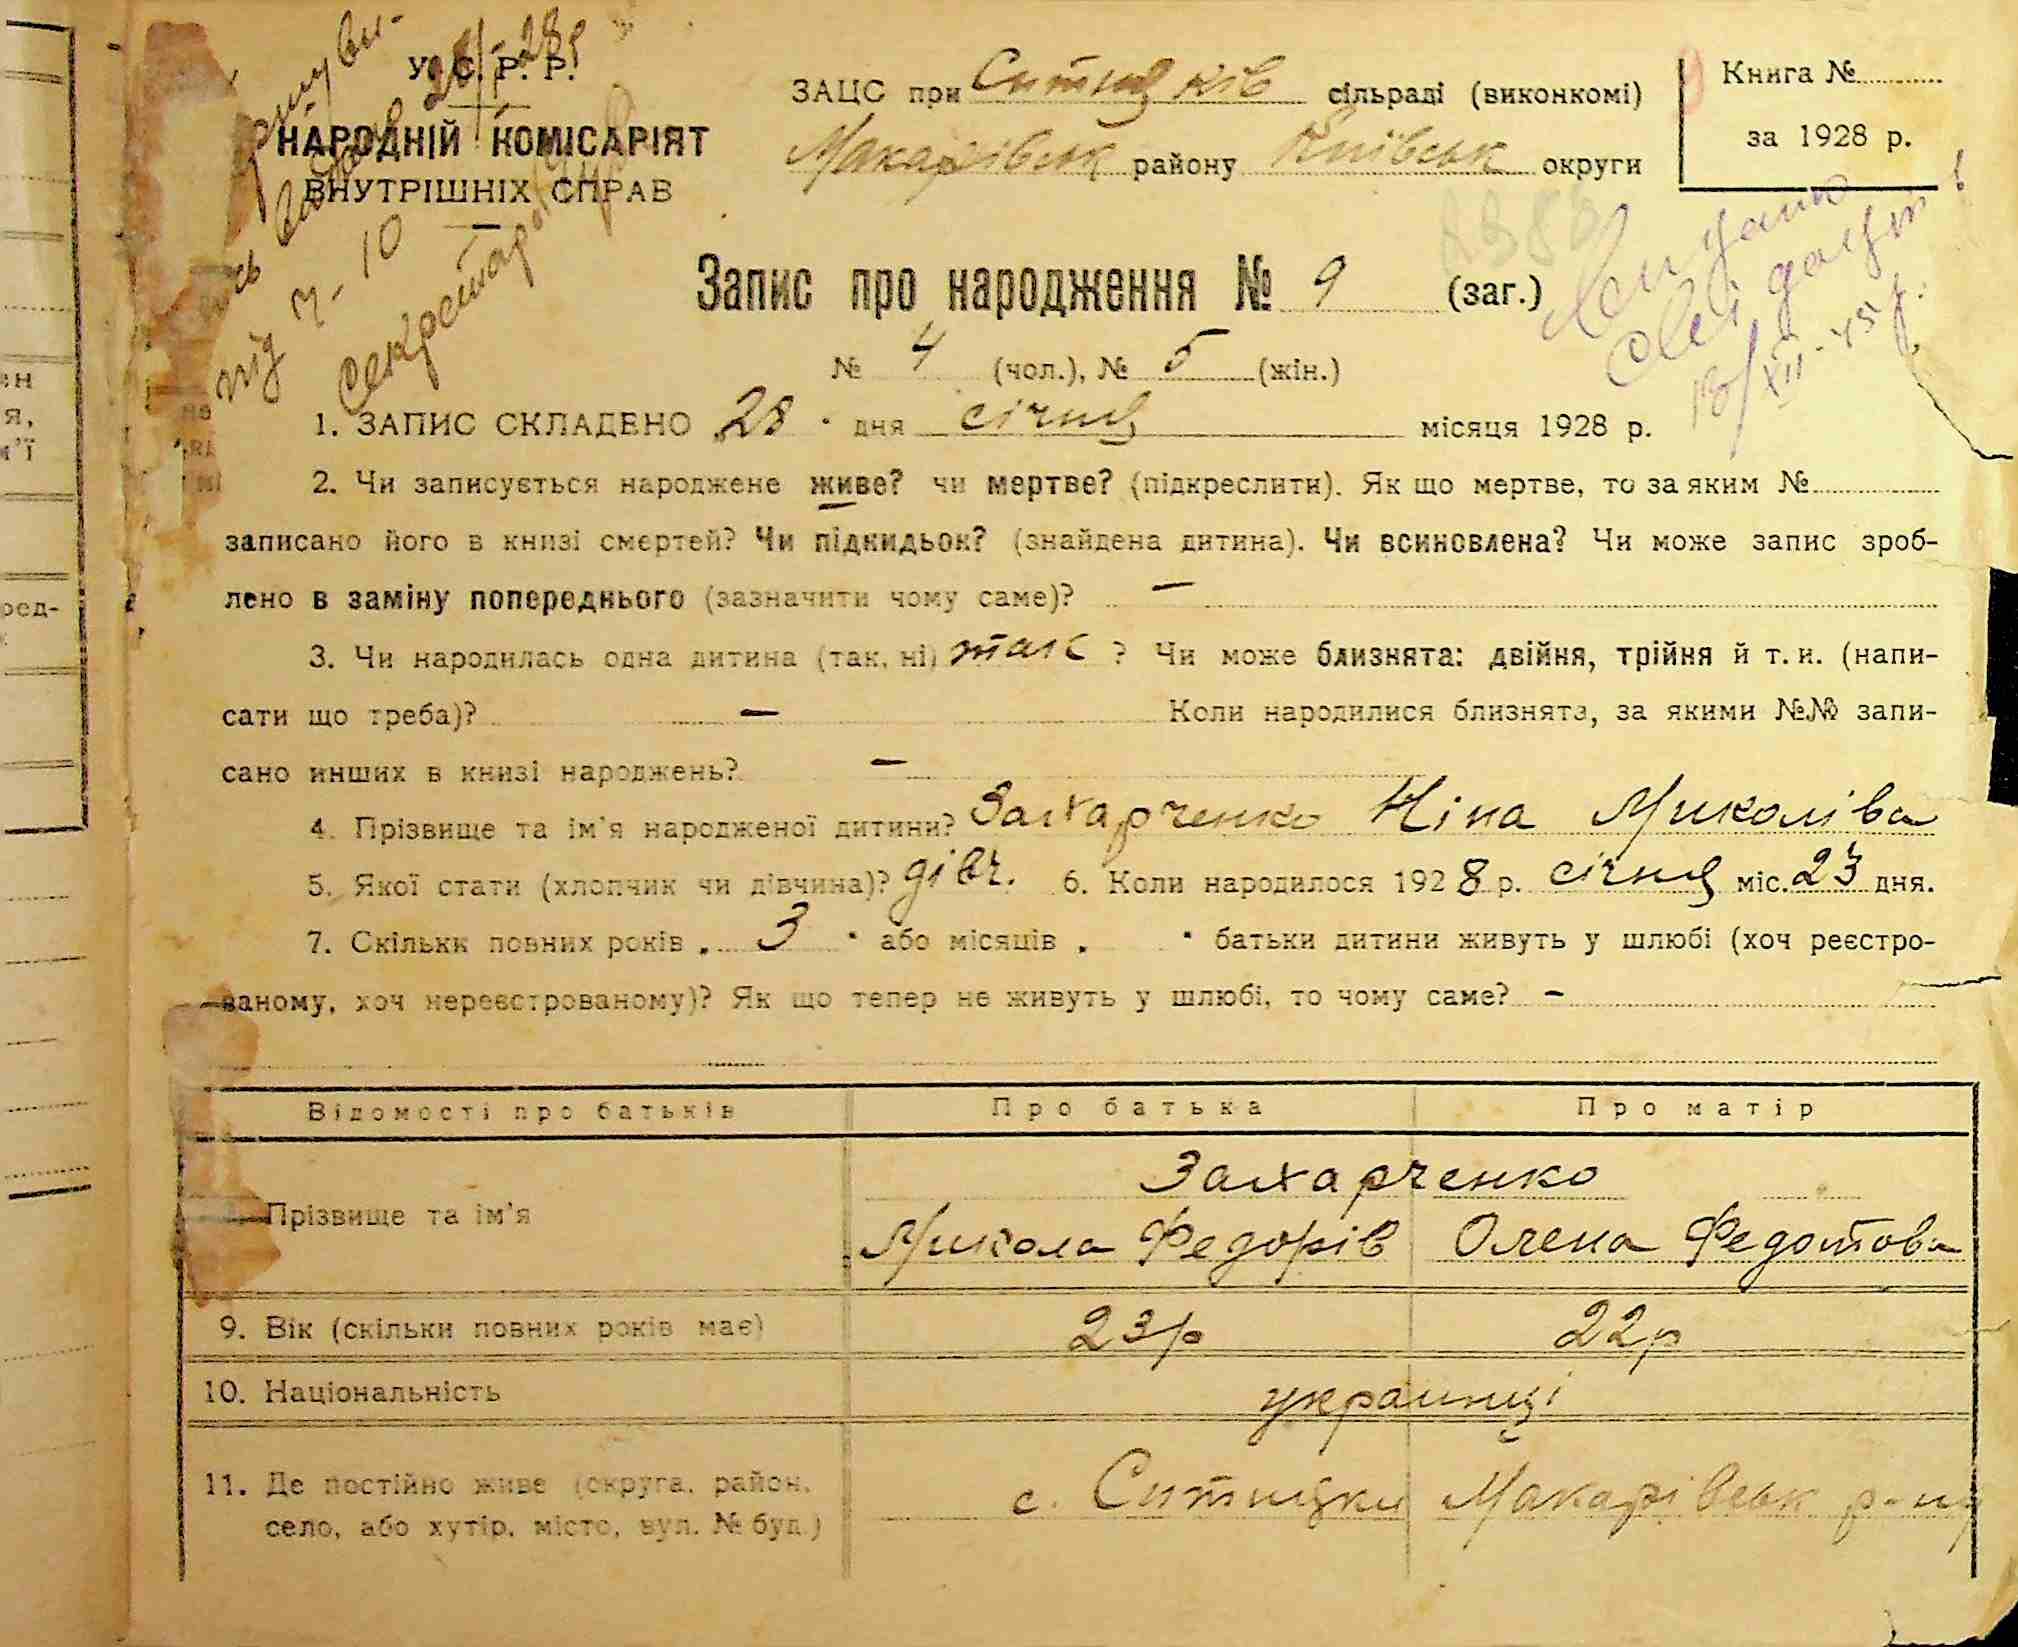 У. С. Р. Р.
НАРОДНІЙ КОМІСАРІЯТ
ВНУТРІШНІХ СПРАВ
28/I-28р
під ч-10
Секретар
ЗАЦС при Ситняків сільраді (виконкомі)
Макарівськ району Київськ округи
Книга №
за 1928 р.
Запис про народження № 9 (заг.)
№ 4 (чол.), № 5 (жін.)
13/XII-45 р.
1. ЗАПИС СКЛАДЕНО „28" дня січня місяця 1928 р.
2. Чи записується народжене живе? чи мертве? (підкреслити). Як що мертве, то за яким №
записано його в книзі смертей? Чи підкидьок? (знайдена дитина). Чи всиновлена? Чи може запис зроб-
лено в заміну попереднього (зазначити чому саме)? —
3. Чи народилась одна дитина (так, ні) так ? Чи може близнята: двійня, трійня й т. и. (напи-
сати що треба)? — Коли народилися близнята, за якими №№ запи-
сано инших в книзі народжень? —
4. Прізвище та ім'я народженої дитини? Захарченко Ніна Миколіва
5. Якої стати (хлопчик чи дівчина)? дівч. 6. Коли народилося 1928 р. січня міс. 23 дня.
7. Скільки повних років „ 3 " або місяців „ " батьки дитини живуть у шлюбі (хоч реєстро-
ваному, хоч нереєстрованому)? Як що тепер не живуть у шлюбі, то чому саме? —
Відомості про батьків Про батька Про матір
Прізвище та ім'я Захарченко
Микола Федорів Олена Федотова
9. Вік (скільки повних років має) 23р 22р
10. Національність украинці
11. Де постійно живе (округа, район, село, або хутір, місто, вул. № буд.) с. Ситняки Макарівськ р-ну